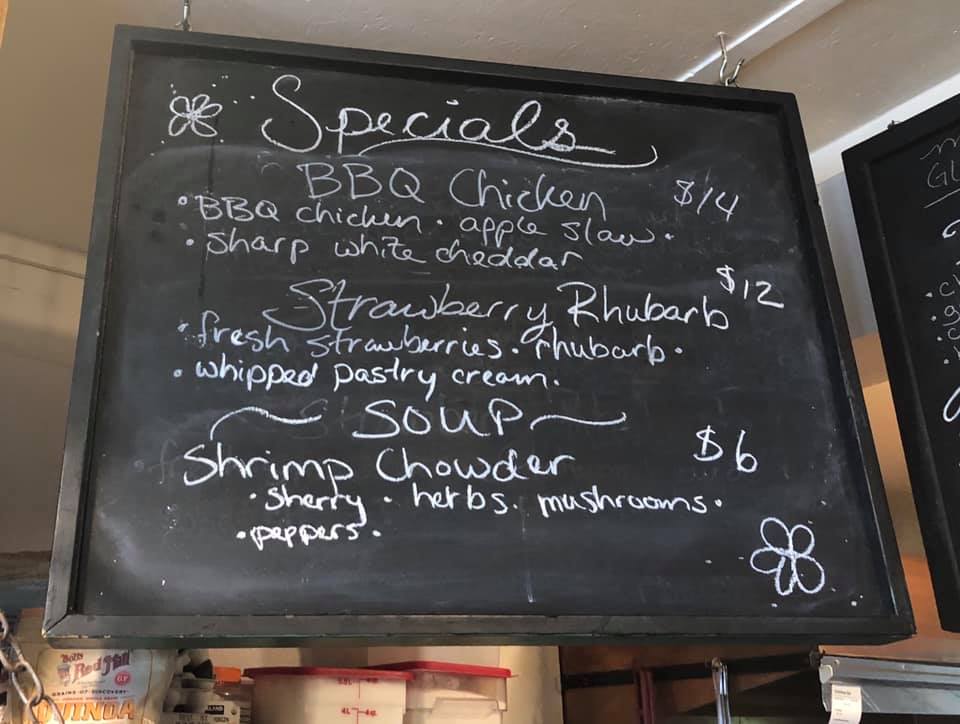 Specials
BBQ Chicken $14
• BBQ chicken • apple slaw •
• sharp white cheddar
Strawberry Rhubarb $12
• fresh strawberries • rhubarb •
• whipped pastry cream.
~ SOUP ~
Shrimp Chowder $6
• sherry • herbs. mushrooms •
• peppers •
Bob's
Red Mill
GRAINS OF DISCOVERY
QUINOA